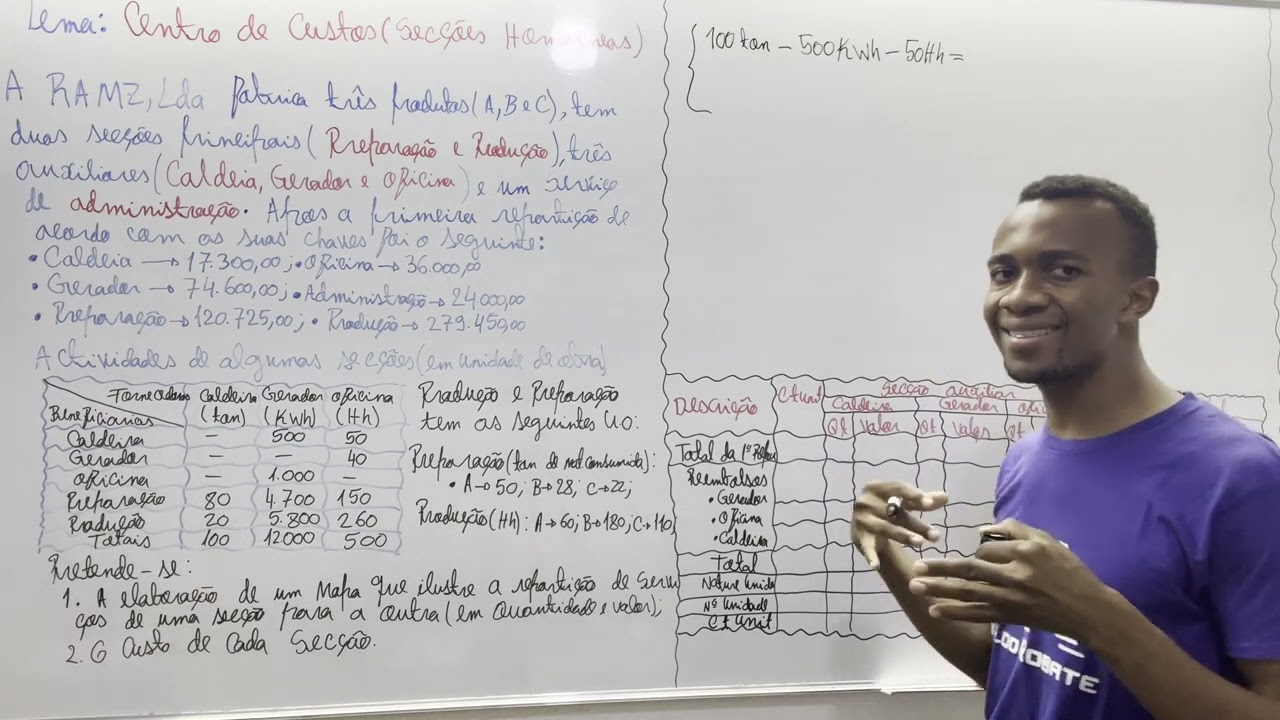 Tema: Centro de Custos (Secções Homogéneas)
A RAMZ, Lda fabrica três produtos (A, B e C), tem
duas secções principais (Preparação e Produção), três
auxiliares (Caldeia, Gerador e Oficina) e um serviço
de administração. Após a primeira repartição de
acordo com as suas chaves foi o seguinte:
• Caldeia → 17.300,00; • Oficina → 36.000,00
• Gerador → 74.600,00; • Administração → 24.000,00
• Preparação → 120.725,00; • Produção → 279.450,00
Actividades de algumas secções (em unidade de obra)
Fornecedores Caldeira Gerador Oficina
Beneficiarios (tan) (KWh) (Hh)
Caldeira — 500 50
Gerador — — 40
Oficina — 1.000 —
Preparação 80 4.700 150
Produção 20 5.800 260
Totais 100 12000 500
Produção e Preparação
tem as seguintes UO:
Preparação (tan de mat consumida):
• A→50; B→28; C→22;
Produção (Hh): A→60; B→180; C→110
Pretende-se:
1. A elaboração de um Mapa que ilustre a repartição de Servi
ços de uma secção para a outra (em quantidade e valor);
2. O Custo de Cada Secção.
100 tan — 500 KWh — 50 Hh =
Descrição Ct Unit Secção auxiliar
Caldeira Gerador Ofic
Qt Valor Qt Valor Qt
Total da 1ª Repar
Reembolsos
• Gerador
• Oficina
• Caldeira
Total
Nature Unida
Nº Unidade
Ct Unit